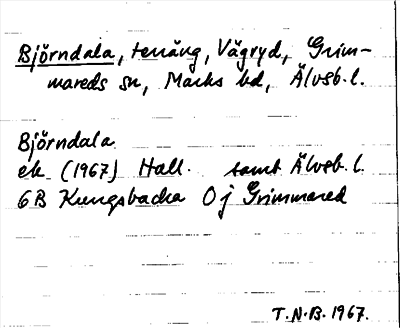 Björndala, terräng, Vägryd, Grim-
mareds sn, Marks hd, Älvsb. l.
Björndala
ek. (1967) Hall. samt Älvsb. l.
6B Kungsbacka 0 j Grimmared
T.N.B. 1967.